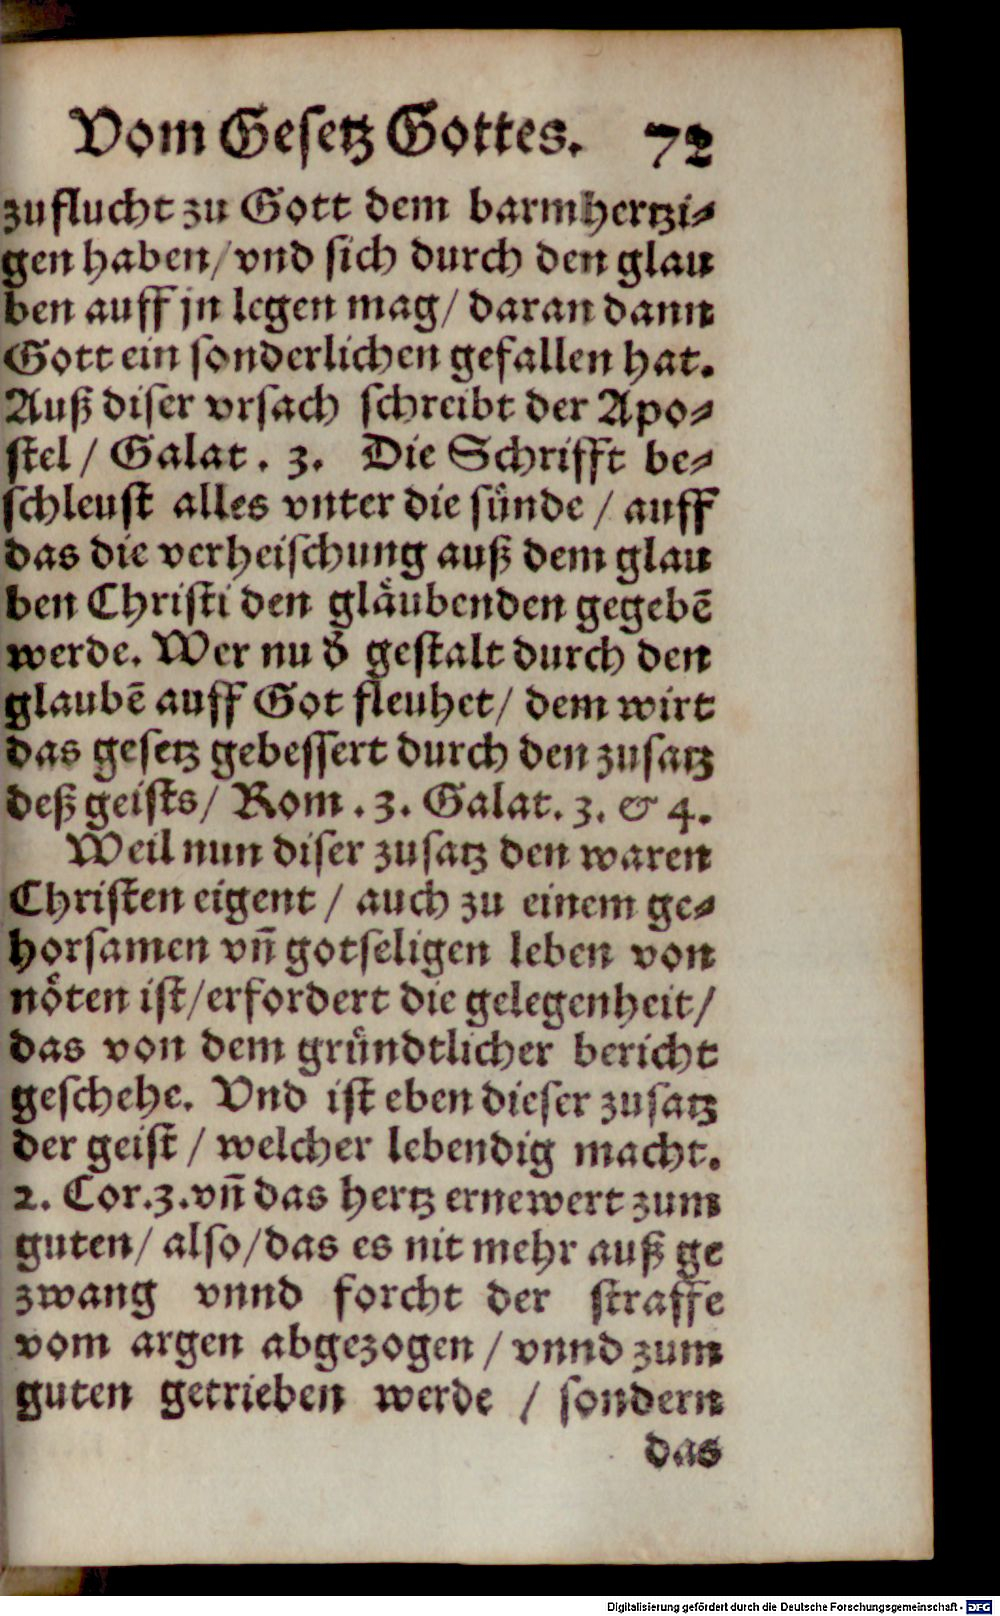 Vom Gesetz Gottes. 72
zuflucht zu Gott dem barmhertzi-
gen haben/vnd sich durch den glau
ben auff jn legen mag/ daran dann
Gott ein sonderlichen gefallen hat.
Auß diser vrsach schreibt der Apo-
stel / Galat. 3. Die Schrifft be-
schleust alles vnter die sünde / auff
das die verheischung auß dem glau
ben Christi den gläubenden gegebē
werde. Wer nu d̕ gestalt durch den
glaubē auff Got fleuhet/ dem wirt
das gesetz gebessert durch den zusatz
deß geists/ Rom. 3. Galat. 3. & 4.
Weil nun diser zusatz den waren
Christen eigent / auch zu einem ge-
horsamen vn̄ gotseligen leben von
nöten ist/erfordert die gelegenheit/
das von dem gründtlicher bericht
geschehe. Vnd ist eben dieser zusatz
der geist / welcher lebendig macht.
2. Cor.3.vn̄ das hertz ernewert zum
guten/ also/das es nit mehr auß ge
zwang vnnd forcht der straffe
vom argen abgezogen / vnnd zum
guten getrieben werde / sondern
das
Digitalisierung gefördert durch die Deutsche Forschungsgemeinschaft - DFG